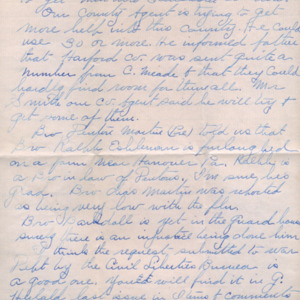 Our County Agent is trying to get
more help into this County. He could
use 30 or more. He informed father
that Harford Co. was sent quite a
number from C. Meade & that they could
hardly find room for them all. Mr.
Smith our Co. Agent said he will try &
get some of them.
Bro told us that
Bro Ralph is furloughed
on a farm near Hanover Pa.
is a Bro in law of
grad. Bro Chas Martin was reported
as being very low with the flu.
Bro is yet in the Guard house
surely there is an injustice being done him
I think the request, submitted to war
Dept by the Civil Liberties Bureau is
a good one. You will find it in G.
Herald, last issue in Items & Comments